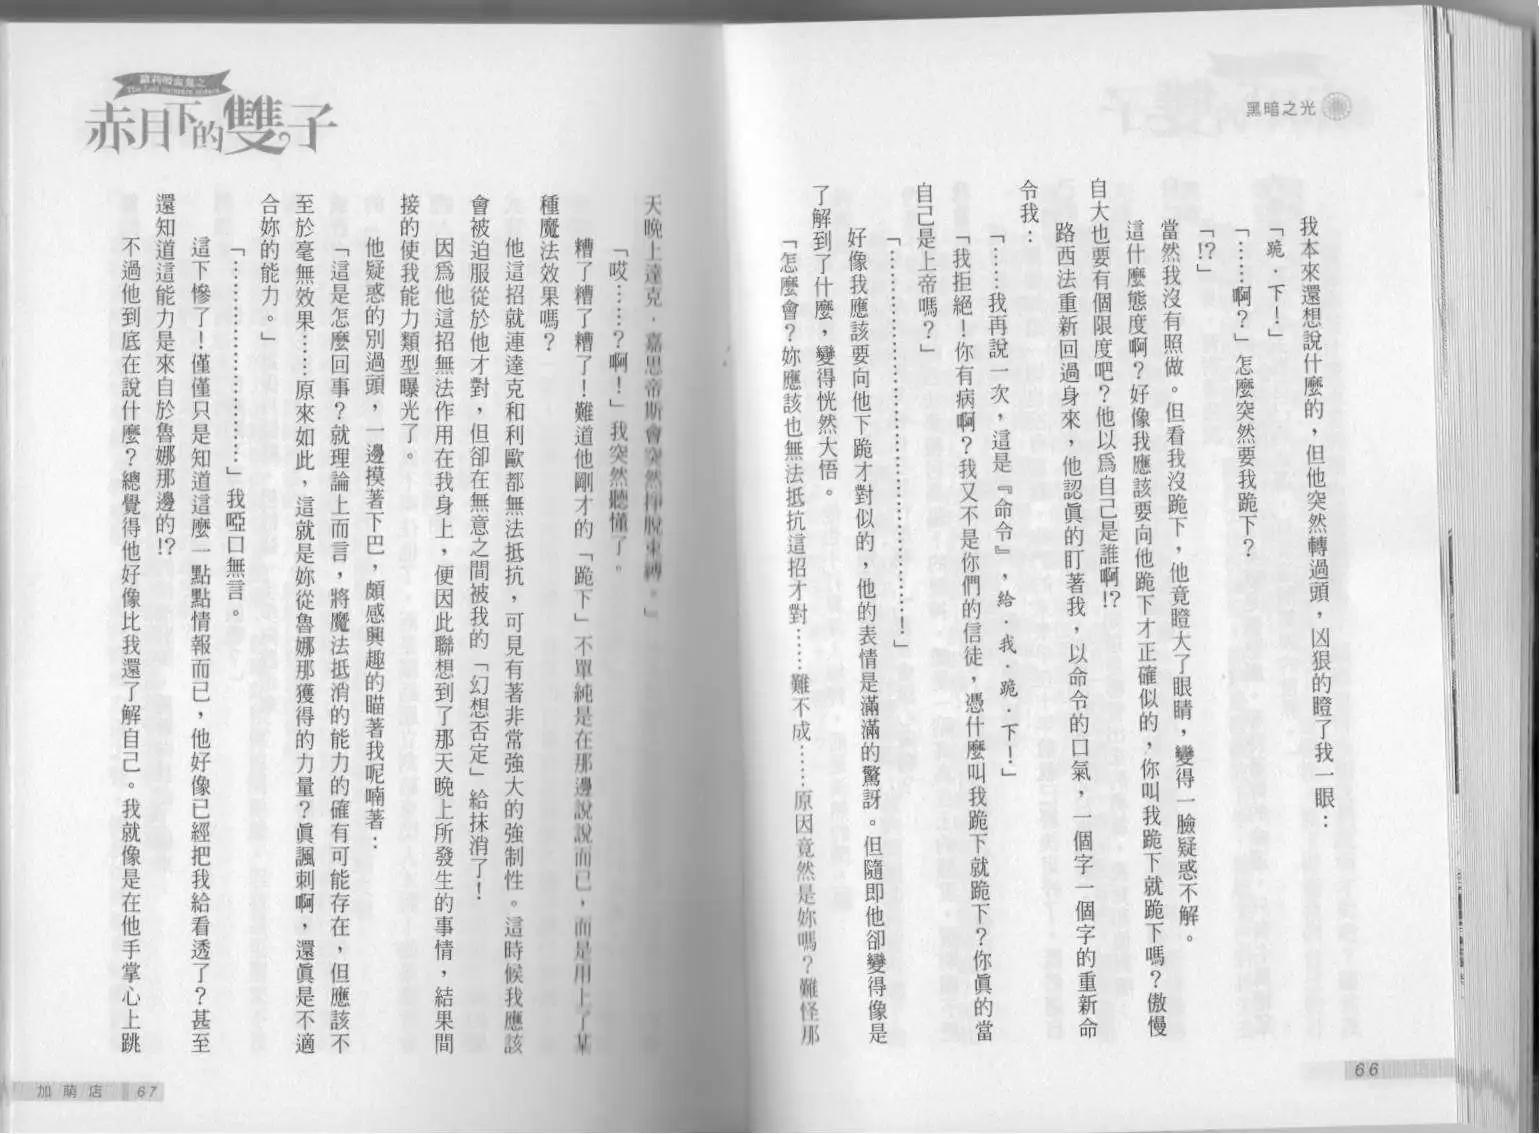 黑暗之光
我本來還想說什麼的，但他突然轉過頭，凶狠的瞪了我一眼：
「跪．下！」
「……啊？」怎麼突然要我跪下？
「!?」
當然我沒有照做。但看我沒跪下，他竟瞪大了眼睛，變得一臉疑惑不解。
這什麼態度啊？好像我應該要向他跪下才正確似的，你叫我跪下就跪下嗎？傲慢
自大也要有個限度吧？他以爲自己是誰啊!?
路西法重新回過身來，他認眞的盯著我，以命令的口氣，一個字一個字的重新命
令我：
「……我再說一次，這是『命令』，給．我．跪．下！」
「我拒絕！你有病啊？我又不是你們的信徒，憑什麼叫我跪下就跪下？你眞的當
自己是上帝嗎？」
「……………………………………！」
好像我應該要向他下跪才對似的，他的表情是滿滿的驚訝。但隨即他卻變得像是
了解到了什麼，變得恍然大悟。
「怎麼會？妳應該也無法抵抗這招才對……難不成……原因竟然是妳嗎？難怪那
66
蘿莉吸血鬼之
The Loli vampire sisters
赤月下的雙子
天晚上達克．嘉思帝斯會突然掙脫束縛。」
「哎……？啊！」我突然聽懂了。
糟了糟了糟了！難道他剛才的「跪下」不單純是在那邊說說而已，而是用上了某
種魔法效果嗎？
他這招就連達克和利歐都無法抵抗，可見有著非常強大的強制性。這時候我應該
會被迫服從於他才對，但卻在無意之間被我的「幻想否定」給抹消了！
因爲他這招無法作用在我身上，便因此聯想到了那天晚上所發生的事情，結果間
接的使我能力類型曝光了。
他疑惑的別過頭，一邊摸著下巴，頗感興趣的瞄著我呢喃著：
「這是怎麼回事？就理論上而言，將魔法抵消的能力的確有可能存在，但應該不
至於毫無效果……原來如此，這就是妳從魯娜那獲得的力量？眞諷刺啊，還眞是不適
合妳的能力。」
「……………………」我啞口無言。
這下慘了！僅僅只是知道這麼一點點情報而已，他好像已經把我給看透了？甚至
還知道這能力是來自於魯娜那邊的!?
不過他到底在說什麼？總覺得他好像比我還了解自己。我就像是在他手掌心上跳
加萌店 67